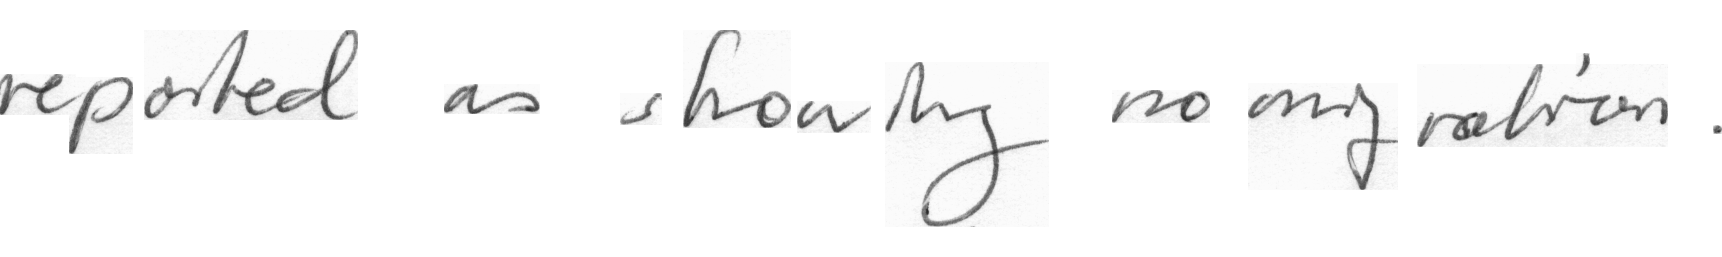 reported as showing no migration .